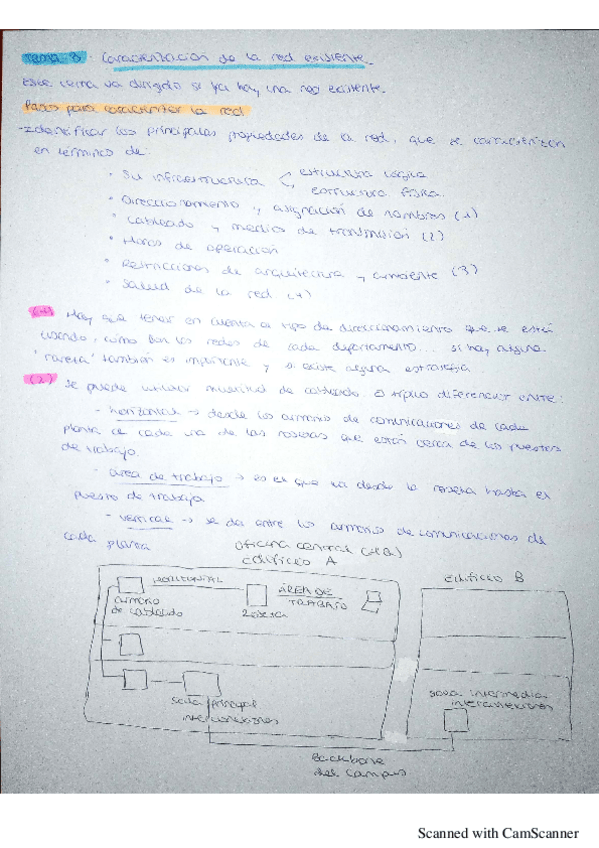 Tema 3. Caracterización de la red existente.
este tema va dirigido si ya hay una red existente.
Pasos para caracterizar la red
-Identificar las principales propiedades de la red, que se caracterizan
en términos de:
• Su infraestructura < estructura lógica
estructura física.
• Direccionamiento y asignación de nombres (1)
• Cableado y medios de transmisión (2)
• Horas de operación
• Restricciones de arquitectura y ambiente (3)
• Salud de la red (4)
(1) Hay que tener en cuenta el tipo de direccionamiento que se está
usando, cómo son las redes de cada departamento... si hay alguna
'rareza' también es importante y si existe alguna estrategia
(2) Se puede utilizar multitud de cableado. El típico diferenciar entre:
- horizontal → desde los armarios de comunicaciones de cada
planta a cada una de las rosetas que están cerca de los puestos
de trabajo.
- área de trabajo → es el que va desde la roseta hasta el
puesto de trabajo
- vertical → se da entre los armarios de comunicaciones de
cada planta
oficina central
EDIFICIO A
EDIFICIO B
HORIZONTAL
ÁREA DE
TRABAJO
armario
de cableado
sala principal
interconexiones
sala intermedia
interconexiones
Backbone
del campus
Scanned with CamScanner